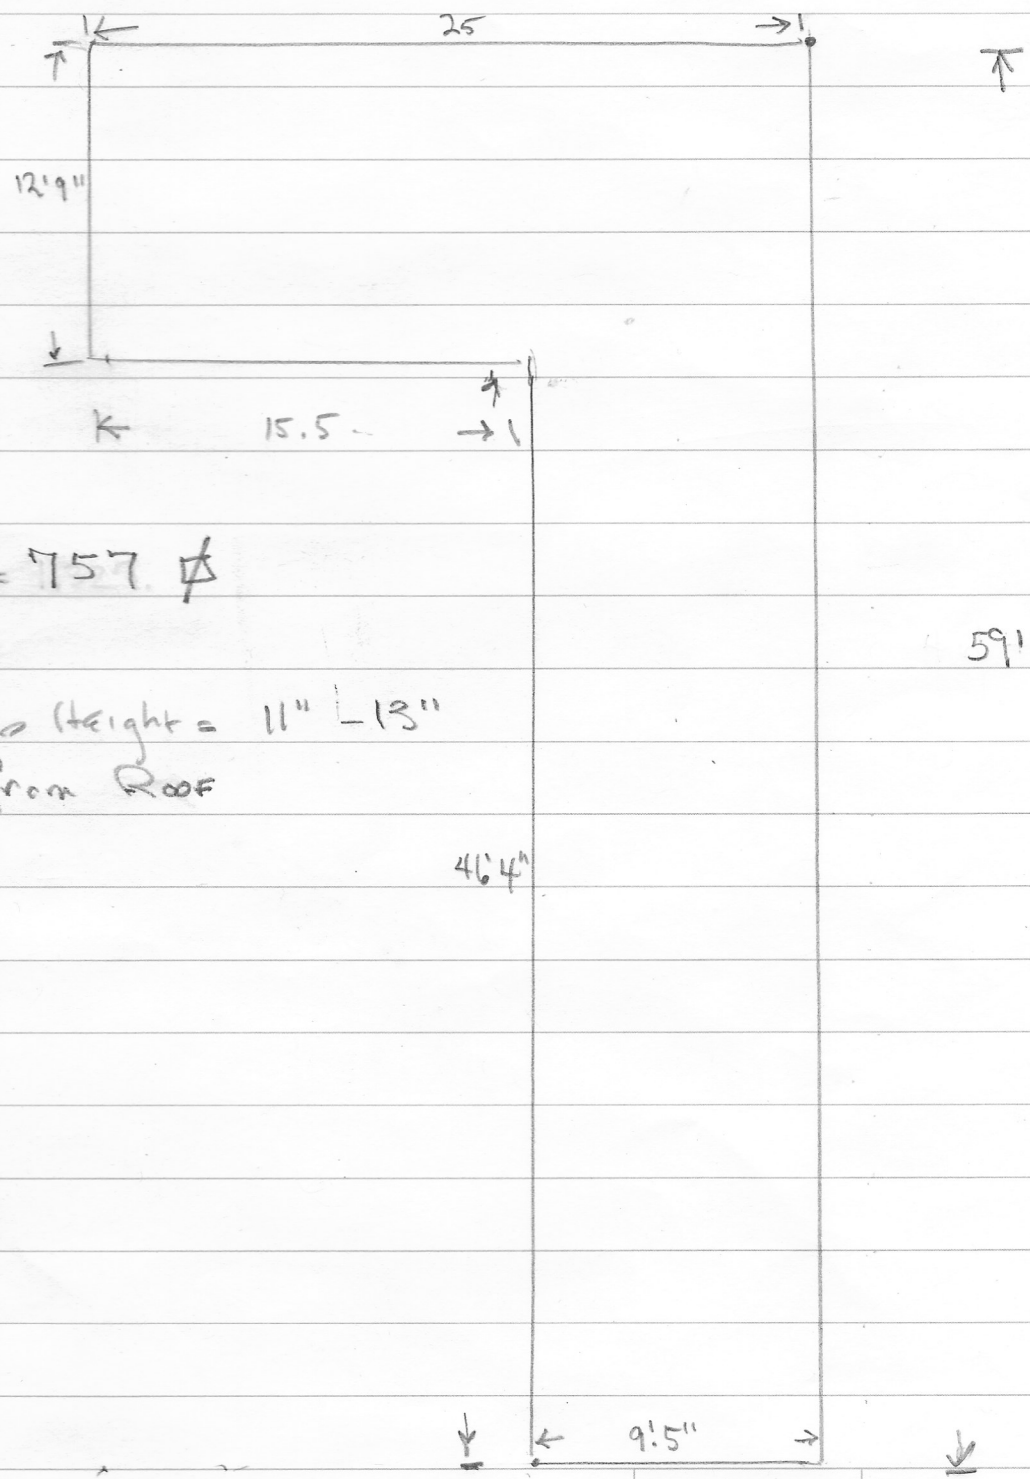 25
12'9"
15.5
= 757
59'
Height = 11" - 13"
From Roof
46'4"
9'.5"